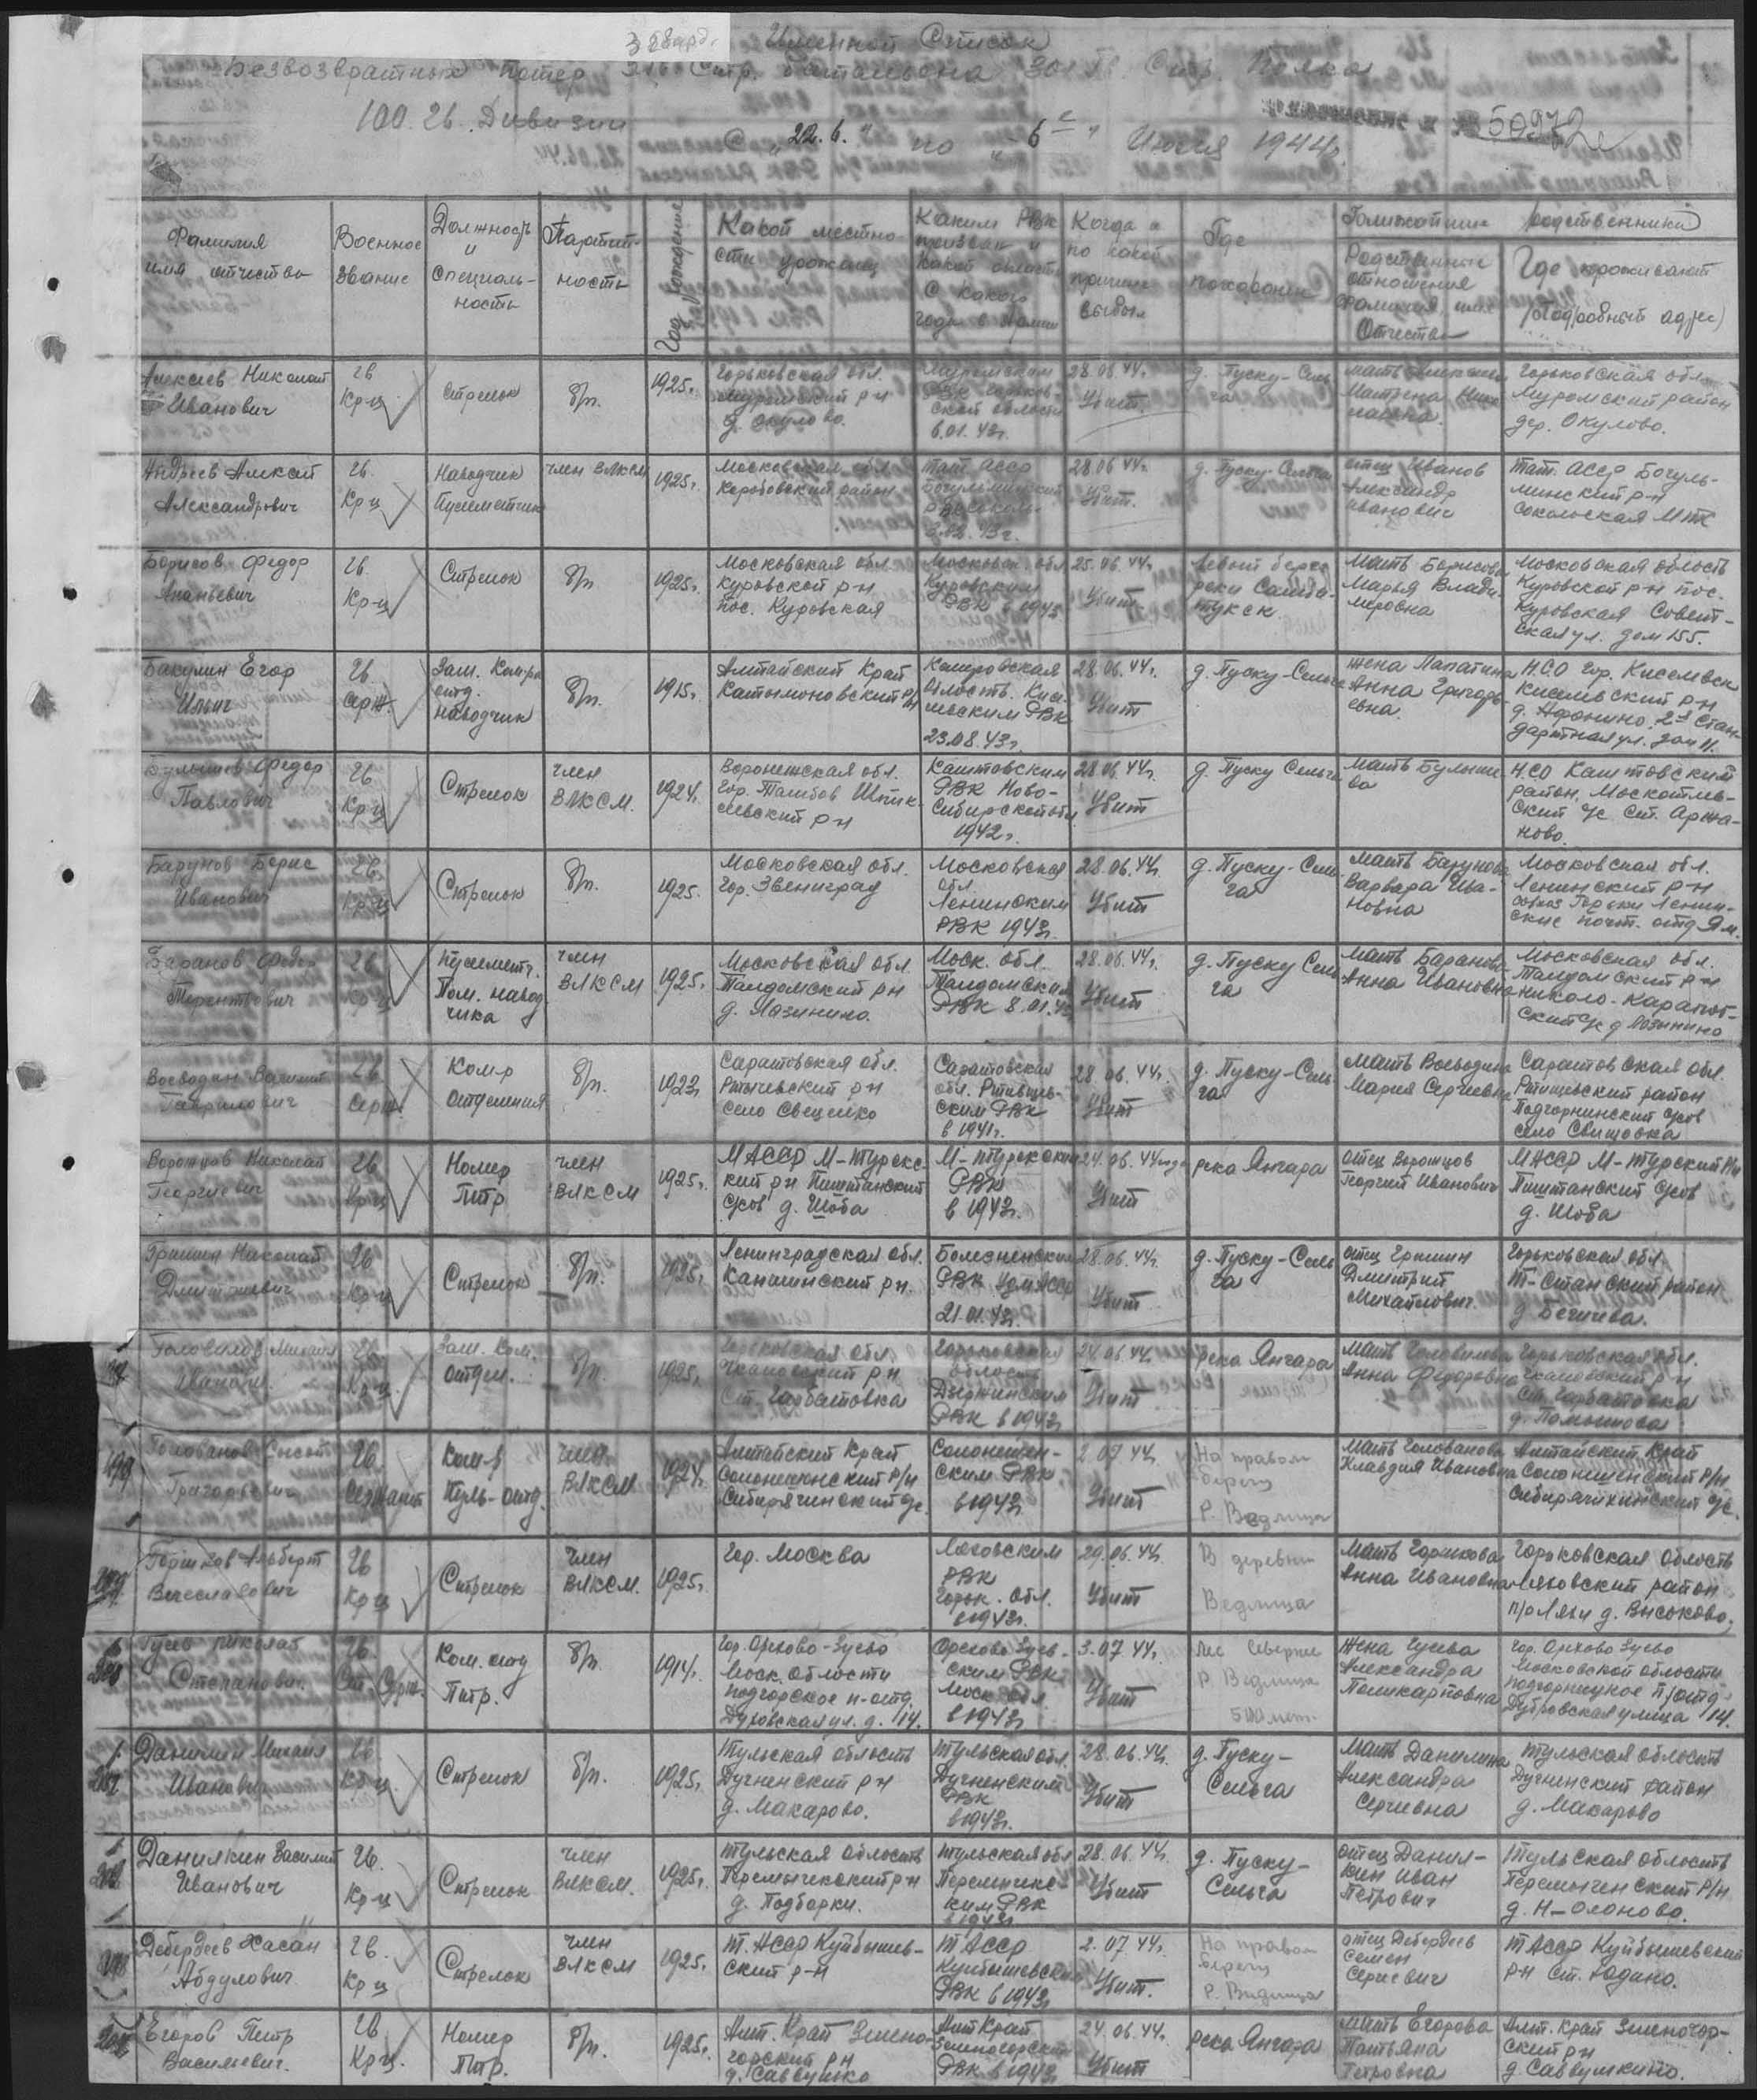 Именной Список
Безвозвратных потерь Стр. батальона Стр. Полка
100 гв. Дивизии
50972с
С "22.6." по "6" Июля 1944г.
Фамилия имя отчество
Военное звание
Должность и специальность
Партийность
Год рождения
Какой местности уроженец
Каким РВК призван и какой области С какого года в Армии
Когда и по какой причине выбыл
Где похоронен
Ближайшие родственники
Родственные отношения фамилия, имя Отчество
Где проживают (подробный адрес)
Алексеев Николай Иванович
Гв Кр-ц
Стрелок
б/п.
1925г.
Горьковская обл. Муромский р-н д. Окулово.
Муромским РВК Горьковской области 6.01.43г.
28.06.44г. Убит.
д. Пуску-Сельга
мать Матрена
Горьковская обл. Муромский район дер. Окулово.
Андреев Алексей Александрович
Гв. Кр-ц
Наводчик Пулеметчик
член ВЛКСМ
1925г.
Московская обл. Коробовский район
Тат. АССР
28.06.44г. Убит.
д. Пуску-Сельга
отец Иванов Александр Иванович
Тат. АССР Богульминский р-н Сокольская МТС
Борисов Федор Ананьевич
Гв. Кр-ц
Стрелок
б/п
1925г.
Московская обл. Куровской р-н пос. Куровская
Московск. обл. Куровским РВК в 1943
25.06.44г. Убит.
Левый берег реки
Мать Борисова Марья Владимировна
Московская область Куровской р-н пос. Куровская Советская ул. дом 155.
Бакулин Егор Ильич
Гв. Серж.
Зам. Ком-ра отд. наводчик
б/п.
1915г.
Алтайский Край
Кемеровская область. Киселевским РВК 23.08.43г.
28.06.44г. Убит
д. Пуску-Сельга
жена Лапатина Анна Григорьевна.
Н.С.О гор. Киселевск Киселевский р-н д. Афонино. 2я Стандартная ул. дом 11.
Булышев Федор Павлович
Гв Кр-ц
Стрелок
член ВЛКСМ.
1924г.
Воронежская обл. Гор. Тамбов
Каштовским РВК Новосибирской обл 1942г.
28.06.44г. Убит
д. Пуску Сельга
Мать Булышева
Н.С.О Каштовский район, ст. Аржаново.
Барунов Борис Иванович
Гв. Кр-ц
Стрелок
б/п.
1925г.
Московская обл. Гор. Звениград
Московская обл. Ленинским РВК 1943г.
28.06.44г. Убит
д. Пуску-Сельга
Мать Барунова Варвара Ивановна
Московская обл. Ленинский р-н совхоз Горки Ленинские почт. отд Ям.
Баранов Федор Терентьевич
Гв. Кр-ц
Пулеметч. Пом. наводчика
член ВЛКСМ
1925г.
Московская обл. Талдомский р-н д. Лазинино.
Моск. обл. Талдомским РВК 8.01.43
28.06.44г. Убит
д. Пуску Сельга
Мать Баранова Анна Ивановна
Московская обл. Талдомский р-н
Воеводин Василий Гаврилович
Гв Серж.
Ком-р отделения
б/п.
1923г
Саратовская обл. Ртищевский р-н село
Саратовская обл. Ртищевским РВК в 1941г.
28.06.44г. Убит
д. Пуску-Сельга
Мать Воеводина Мария Сергеевна
Саратовская обл. Ртищевский район Подгорнинский с/сов село Свищовка
Воронцов Николай Георгиевич
Гв Кр-ц
Номер Птр
член ВЛКСМ
1925г.
МАССР М-Турекский р-н Пиштанский с/сов д. Шоба
М-Турекским РВК в 1943г.
24.06.44года Убит
река Янгара
отец Воронцов Георгий Иванович
МАССР М-Турский р-н Пиштанский с/сов д. Шоба
Гришин Николай Дмитриевич
Гв Кр-ц
Стрелок
б/п.
1925г.
Ленинградская обл. Канашинский р-н.
РВК 21.01.43г.
28.06.44г. Убит
д. Пуску-Сельга
отец Гришин Дмитрий Михайлович
Горьковская обл Т-Станский район д. Бегичева.
Головилов Михаил Иванов.
Гв. Кр-ц
Зам. Ком. отдел.
б/п.
1925г.
Горьковская обл. Чкаловский р-н ст. Гарбатовка
Горьковская область Дзержинским РВК в 1943г
24.06.44г. Убит
река Янгара
Мать Головилова Анна Федоровна
Горьковская обл. Чкаловский р-н ст. Гарбатовка
Голованов Сысой Григорьевич
Гв. Сержант
Ком-р Пуль-отд.
член. ВЛКСМ
1924г.
Алтайский Край Солонешенский р/н
Солонешенским РВК в 1943г
2.07.44г. Убит
На правом берегу р. Ведлица
Мать Голованова Клавдия Ивановна
Алтайский Край Солонешенский р/н Сибирячихинский с/с.
Горшков Альберт Вячеславович
Гв Кр-ц
Стрелок
член ВЛКСМ.
1925г.
Гор. Москва
РВК Горьк. обл. в 1943г.
29.06.44г. Убит
В деревни Ведлица
Мать Горшкова Анна Ивановна
Горьковская область Ляховский район п/о Ляхи д. Высоково.
Гусев Николай Степанович
Гв. Ст. Серж.
Ком. отд Птр.
б/п.
1914г.
Гор. Орехово-Зуево Моск. области
Орехово Зуевским РВК Моск. обл. в 1943г
3.07.44г. Убит
лес Севернее р. Ведлица 500 мет.
Жена Гусева Александра Поликарповна
гор. Орехово Зуево Московской области Дубровская улица 14.
Данилин Михаил Иванович
Гв. Кр-ц.
Стрелок
б/п.
1925г.
Тульская область Дугненский р-н д. Макарово.
Тульская обл. Дугненским РВК в 1943г.
28.06.44г. Убит
д. Пуску-Сельга
Мать Данилина Александра Сергеевна
Тульская область Дугнинский район д. Макарово
Данилкин Василий Иванович
Гв. Кр-ц
Стрелок
член ВЛКСМ.
1925г.
Тульская область Перемышский р-н д. Подборки.
Тульская обл РВК в 1943г
28.06.44г. Убит
д. Пуску-Сельга
отец Данилкин Иван Петрович
Тульская область р/н
Дебердеев Хасан Абдулович
Гв. Кр-ц
Стрелок
член ВЛКСМ
1925г.
Т. АССР Куйбышевский р-н
ТАССР Куйбышевским РВК в 1943г
2.07.44г. Убит.
На правом берегу р. Видлица
отец Дебердеев Семен Сергеевич
ТАССР Куйбышевский р-н ст. Юдино.
Егоров Петр Васильевич.
Гв Кр-ц.
Номер Птр.
б/п.
1925г.
Алт. Край Змеиногорский р-н д. Саввушко
Алт Край Змеиногорским РВК в 1943г
24.06.44г. Убит
река Янгара
Мать Егорова Татьяна Петровна
Алт. Край Змеиногорский р-н д. Саввушкино.